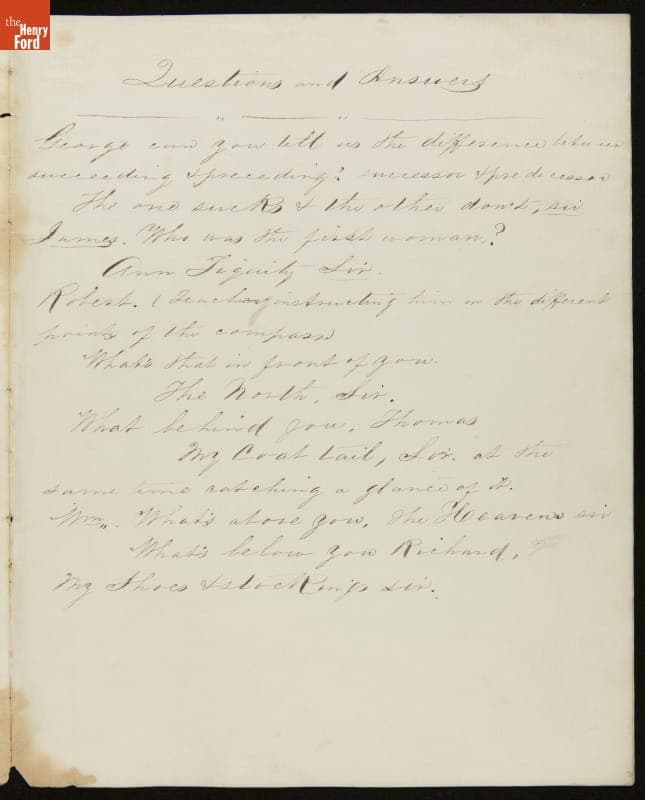 the
Henry
Ford
Questions and Answers
George can you tell us the difference between
succeeding & preceding? successor & predecessor
The one sucks & the other don't, sir
James. Who was the first woman?
Ann Tiquity Sir.
Robert. (Teacher instructing him in the different
points of the compass)
What's that in front of you.
The North, Sir.
What behind you, Thomas
My Coat tail, Sir. at the
same time catching a glance of it.
Wm,, What's above you, the Heavens sir
What's below you Richard,
My Shoes & stockings sir.